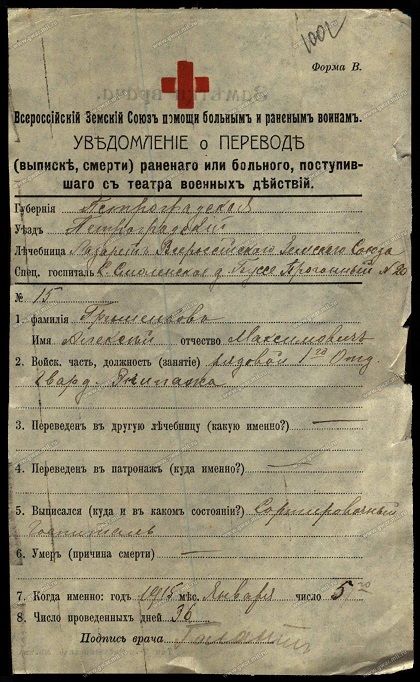 1001
Форма В.
Всероссійскій Земскій Союзъ помощи больнымъ и раненымъ воинамъ.
УВѢДОМЛЕНІЕ о ПЕРЕВОДѢ
(выпискѣ, смерти) раненаго или больного, поступив-
шаго съ театра военныхъ дѣйствій.
Губернія Петроградской
Уѣздъ Петроградскій
Лѣчебница Лазаретъ Всероссійскаго Земскаго Союза
Спец. госпиталь Смоленское д. Прогонный № 20
№ 15
1. фамилія Грышенковъ
Имя Алексѣй отчество Максимовичъ
2. Войск. часть, должность (занятіе) рядовой 1го Отд.
Гвард. Экипажа
3. Переведенъ въ другую лѣчебницу (какую именно?) —
4. Переведенъ въ патронажъ (куда именно?) —
5. Выписался (куда и въ какомъ состояніи?) Сортировочный
Госпиталь
6. Умеръ (причина смерти) —
7. Когда именно: годъ 1915 мѣс. Января число 5го
8. Число проведенныхъ дней 36
Подпись врача